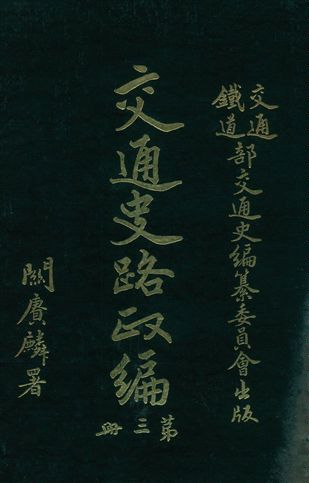 交通
鐵道部交通史編纂委員會出版
交通史路政編
第三冊
關賡麟署